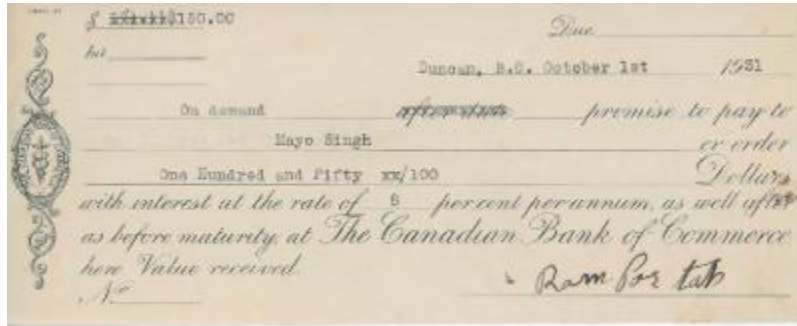 $ $150.00
Due
Int
Duncan, B.C. October 1st 1931
On demand after date promise to pay to
Mayo Singh or order
One Hundred and Fifty xx/100 Dollars
with interest at the rate of 8 per cent per annum, as well after
as before maturity, at The Canadian Bank of Commerce
here Value received.
No Ram Por tab